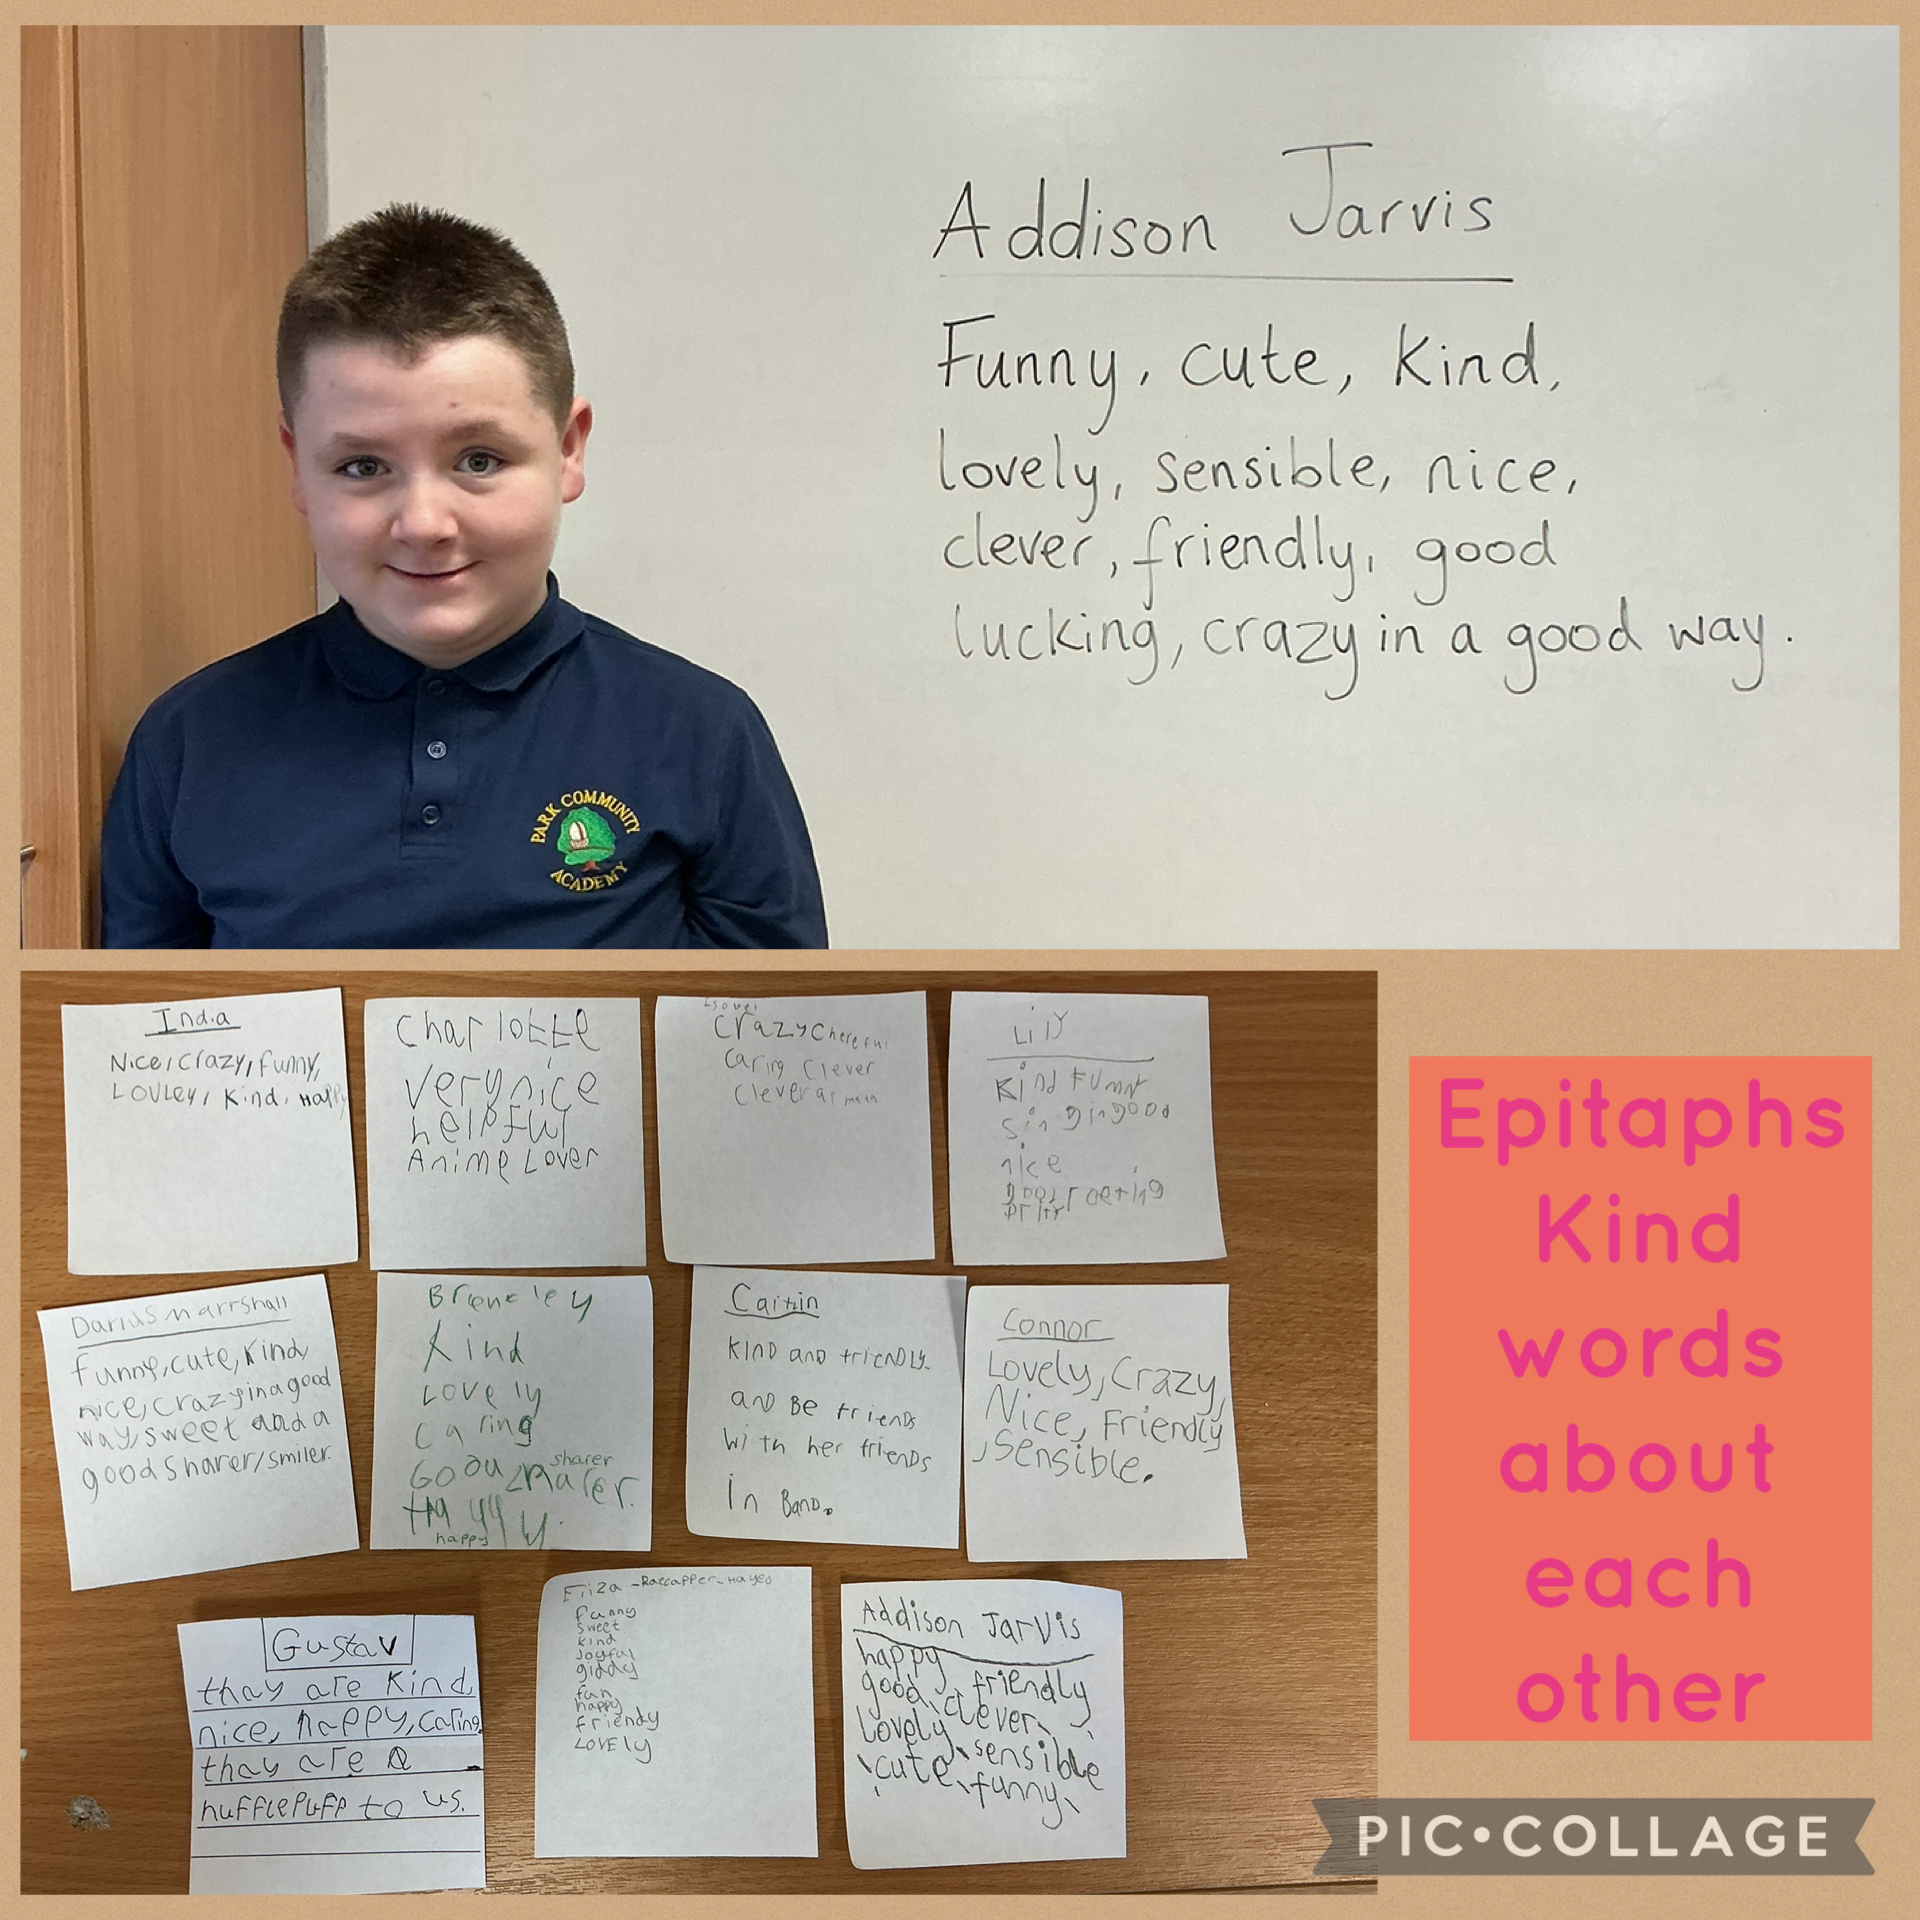 Addison Jarvis
Funny, cute, kind,
lovely, sensible, nice,
clever, friendly, good
lucking, crazy in a good way.
PARK COMMUNITY
ACADEMY
India
Nice, crazy, funny,
LOVLEY, kind, Happy
Charlotte
very nice
helpful
Anime Lover
crazy Chereful
caring clever
clever at
Lily
kind Funny
singin good
nice
Darius marrshall
funny, cute, kind,
nice, crazy in a good
way, sweet and a
good sharer/smiler.
kind
Lovely
caring
sharer
happy
Caitlin
KIND AND friENDLY.
AND BE friENDS
With her friENDS
In BAND.
Connor
Lovely, Crazy,
Nice, Friendly
, Sensible.
Gustav
thay are kind,
nice, happy, caring.
thay are a
hufflepuff to us.
funny
sweet
kind
joyful
giddy
fun
happy
friendy
LOVELY
Addison Jarvis
happy
good, friendly
Lovely, clever,
cute, sensible
funny,
Epitaphs
Kind
words
about
each
other
PIC•COLLAGE